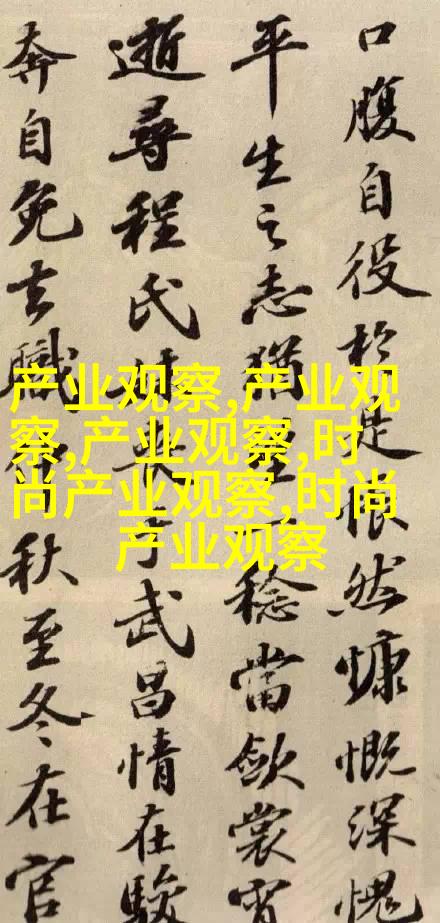 口腹自役於是悵然慷慨深愧
平生之志猶一稔當斂裳宵
逝尋程氏喪于武昌情在駿
奔自免去職秋至冬在官
产业观察,产业观
察,产业观察,时
尚产业观察,时尚
产业观察